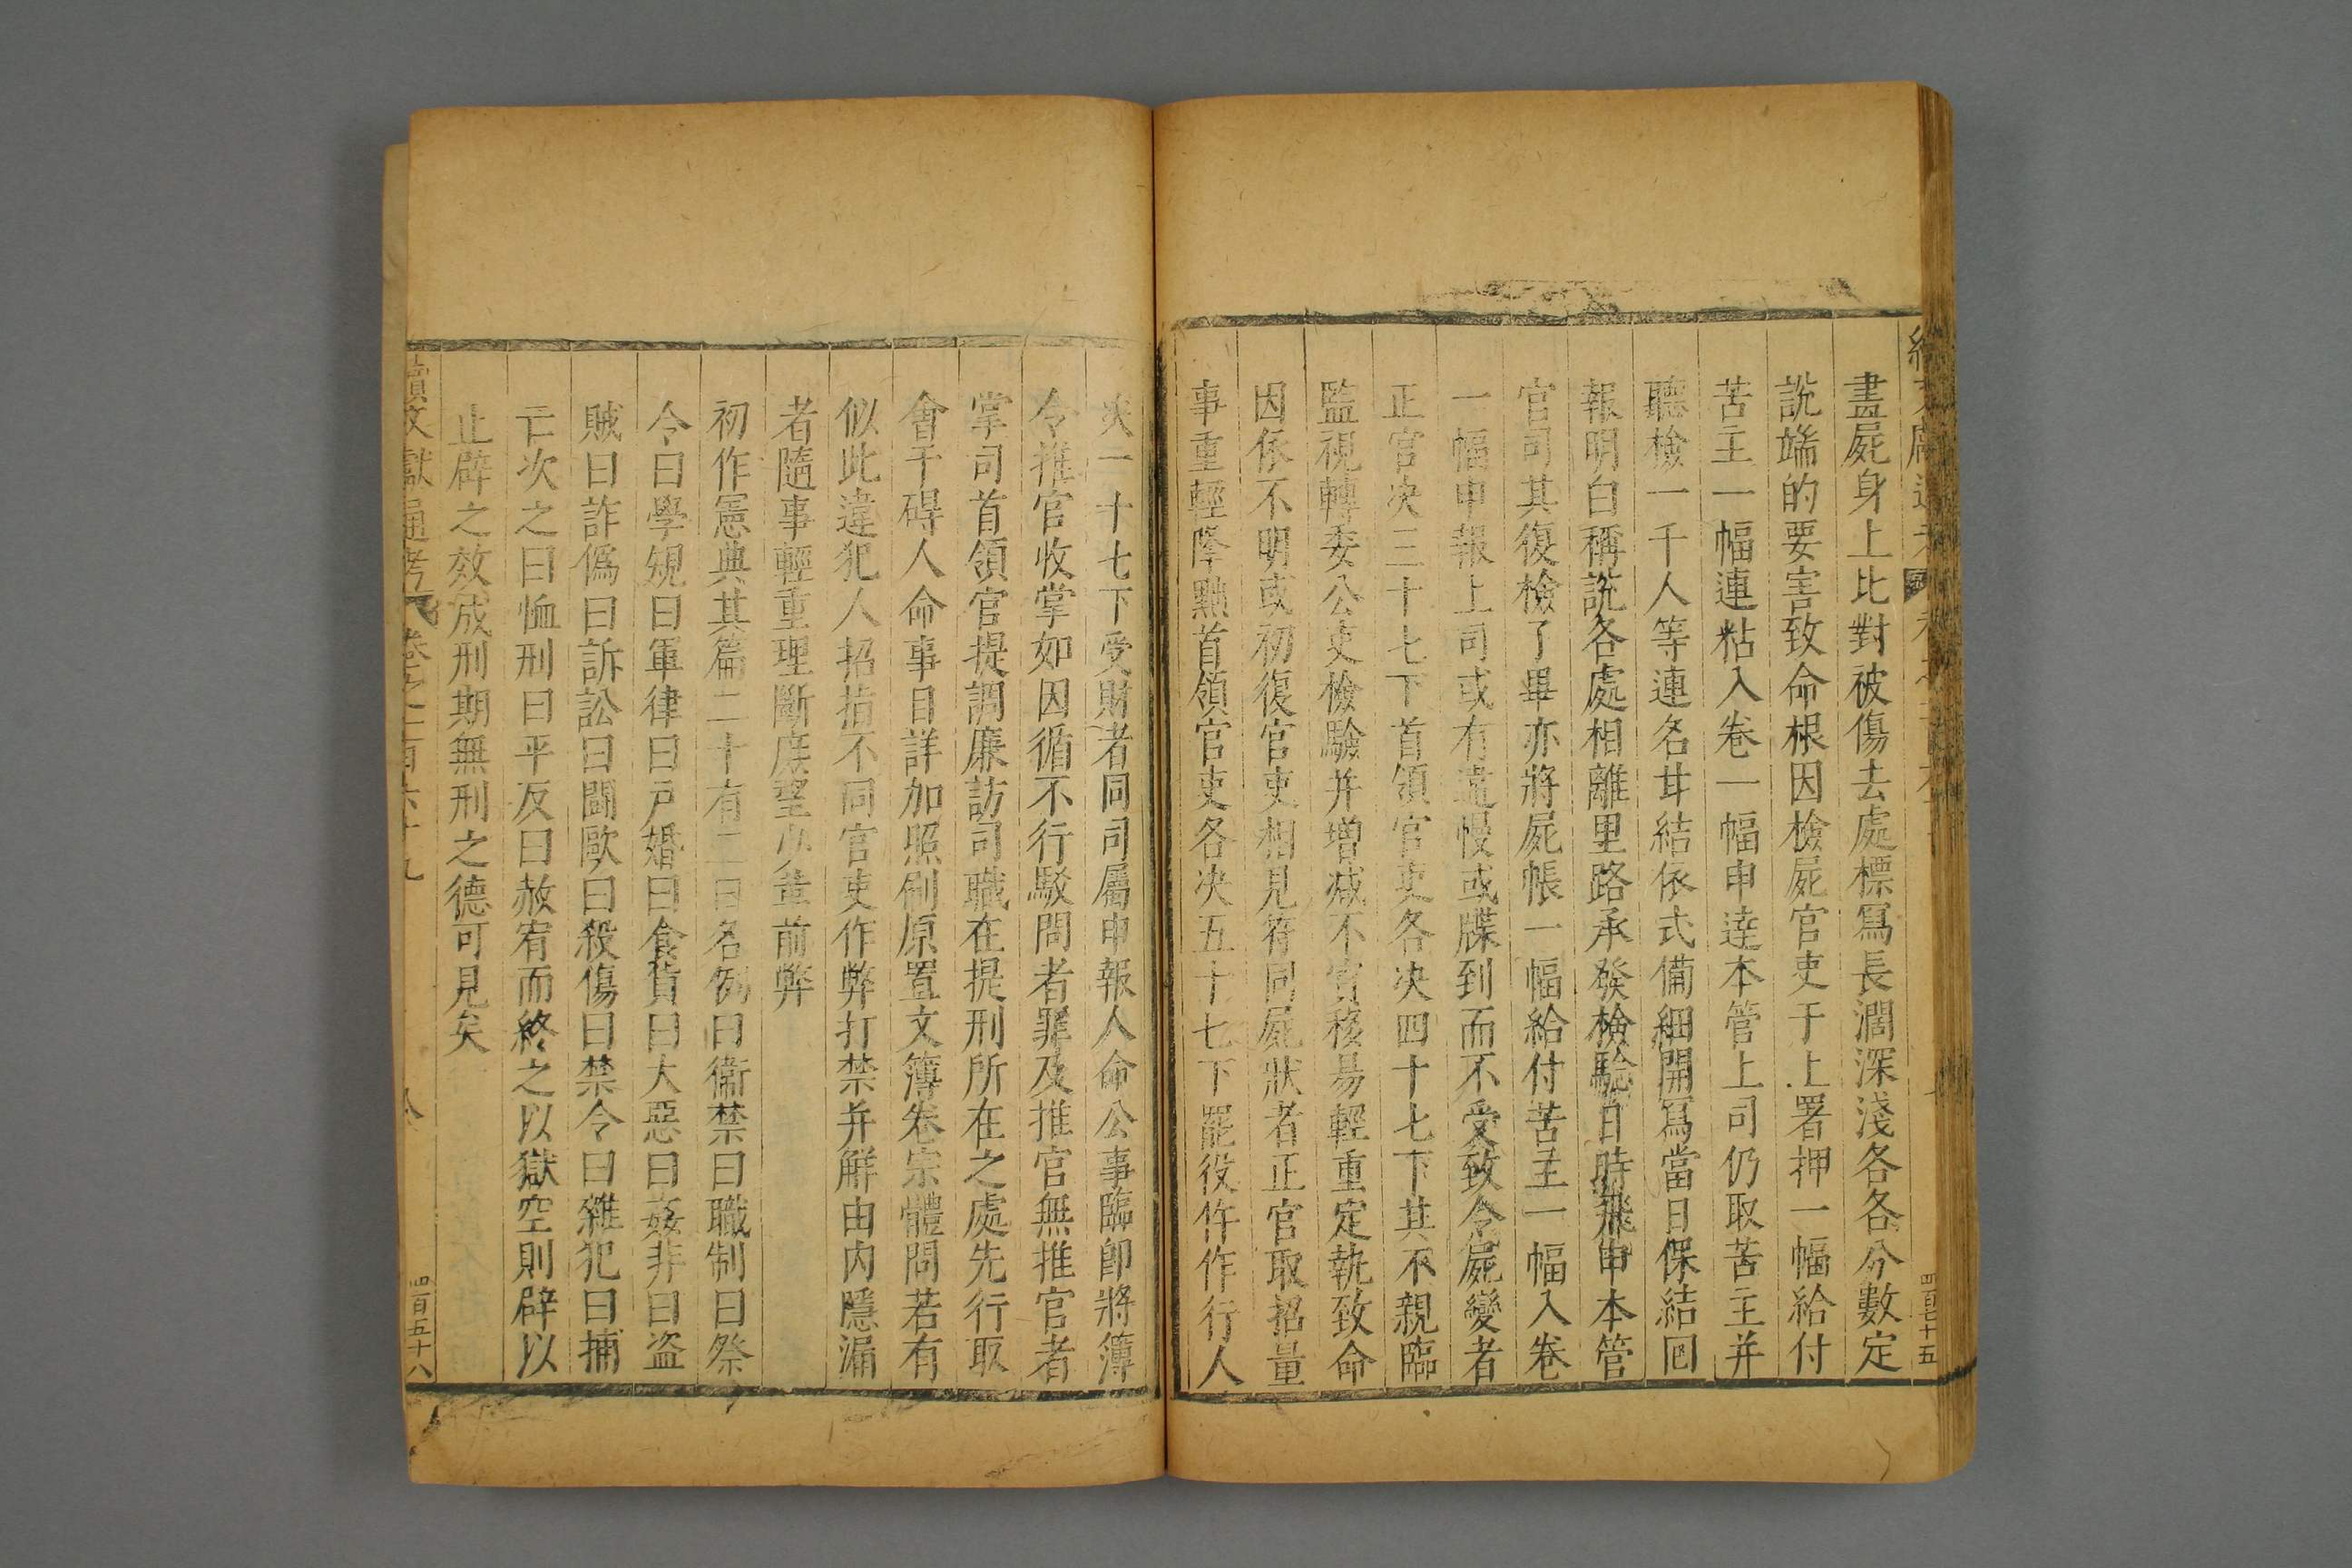 畫屍身上比對被傷去處標寫長濶深淺各各分數定
說端的要害致命根因檢屍官吏于上署押一幅給付
苦主一幅連粘入卷一幅申達本管上司仍取苦主并
聽檢一干人等連名甘結依式備細開寫當日保結回
報明白稱說各處相離里路承發檢驗日時飛申本管
官司其復檢了畢亦將屍帳一幅給付苦主一幅入卷
一幅申報上司或有違慢或牒到而不受致令屍變者
正官决三十七下首領官吏各决四十七下其不親臨
監視轉委公吏檢驗并增减不實移易輕重定執致命
因依不明或初復官吏相見符同屍狀者正官取招量
事重輕降黜首領官吏各决五十七下罷役仵作行人
决一十七下受財者同司屬申報人命公事臨卽將簿
令推官收掌如因循不行駁問者罪及推官無推官者
掌司首領官提調廉訪司職在提刑所在之處先行取
會干碍人命事目詳加照刷原置文簿卷宗體問若有
似此違犯人招指不同官吏作弊打禁并解由内隱漏
者隨事輕重理斷庶望少革前弊
初作憲典其篇二十有二曰名例曰衞禁曰職制曰祭
令曰學規曰軍律曰戶婚曰食貨曰大惡曰姦非曰盗
賊曰詐僞曰訴訟曰鬪歐曰殺傷曰禁令曰雜犯曰捕
亡次之曰恤刑曰平反曰赦宥而終之以獄空則辟以
止辟之效成刑期無刑之德可見矣
續文獻通考 卷之一百六十九 八 四百五十八